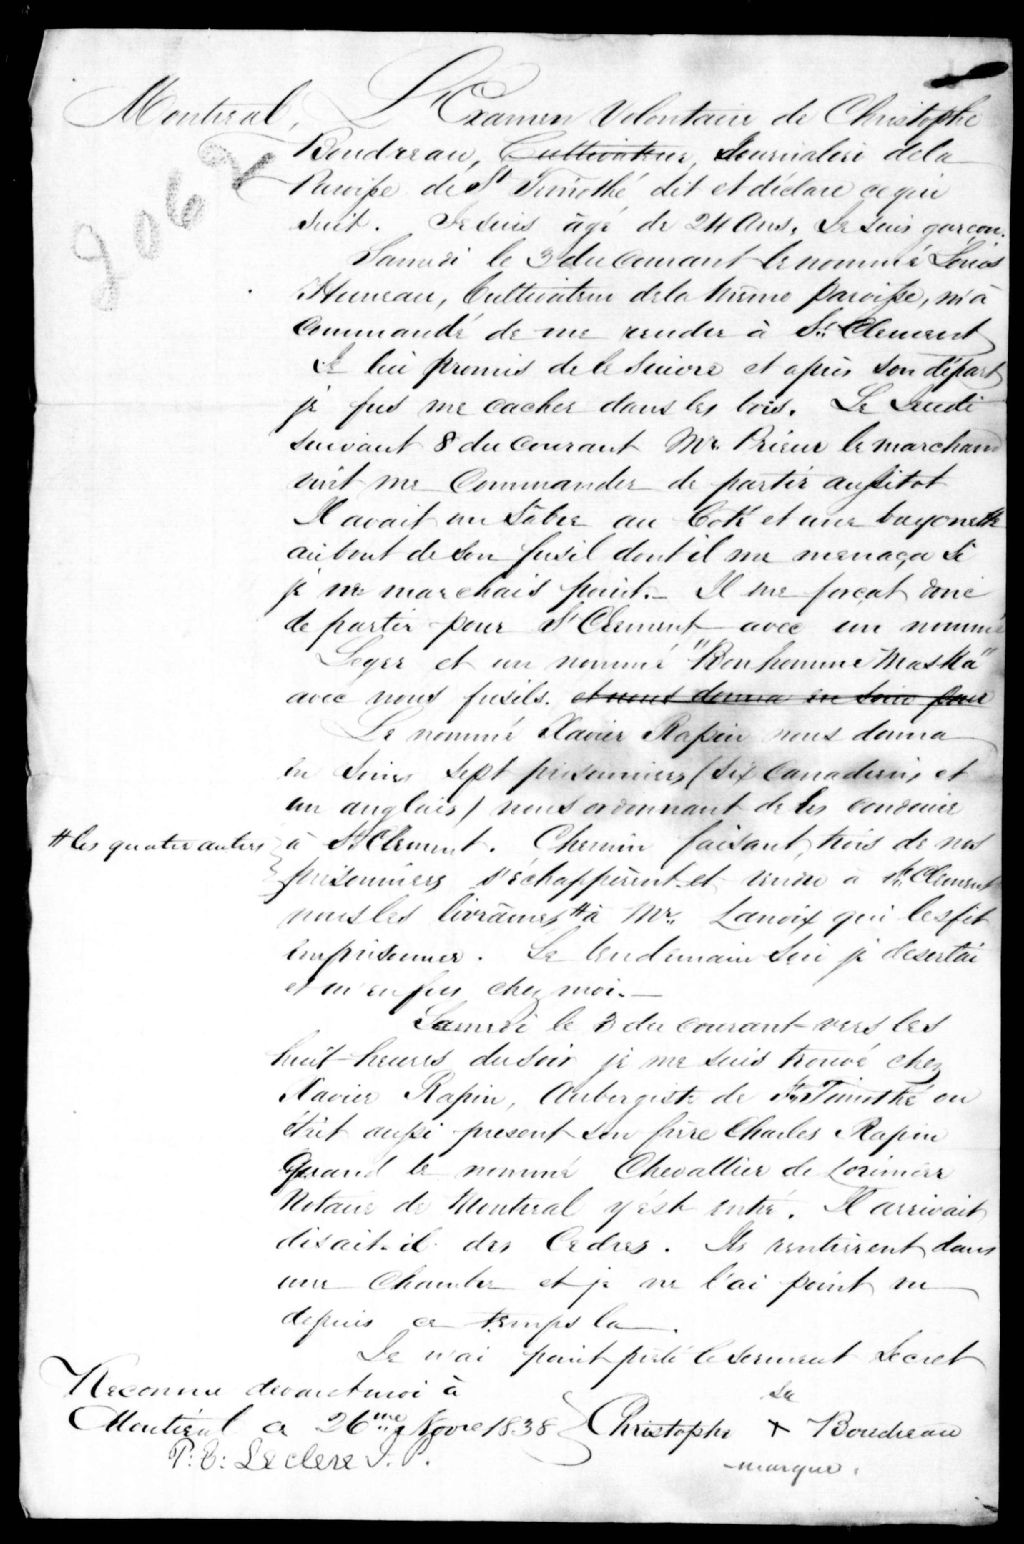 Montreal, L'Examen Volontaire de Christophe
2062
Boudreau, Cultivateur, Journalier de la
Paroisse de St Timothé dit et déclare ce qui
suit. Je suis âgé de 24 Ans, Je suis garcon.
Samedi le 3 du Courant le nommé Louis
Huneau, Cultivateur de la même paroisse, m'à
Commandé de me rendre à St. Clement
Je lui promis de le suivre et après son départ
je fus me cacher dans les bois. Le Jeudi
suivant 8 du courant Mr. Prieur le marchand
vint me Commander de partir aussitot
Il avait un Sabre au Coté et une bayonette
au bout de son fusil dont il me menaça si
je ne marchais point. Il me forçat donc
de partir pour St Clement avec un nommé
Leger et un nommé "Bonhomme Maska"
avec nous fusils. et nous donna en soin pour
Le nommé Xavier Rapin nous donna
en soins sept prisonniers (six Canadiens et
un anglais) nous ordonnant de les conduire
à St Clement. Chemin faisant, trois de nos
# les quatre autres
prisonniers s'échappèrent et rendu à St. Clement
nous les livrâmes # à Mr. Lanoix qui les fit
emprisonner. Le lendemain soir je desertai
et m'en fus chez moi.
Samedi le 3 du courant vers les
huit heures du soir je me suis trouvé chez
Xavier Rapin, Aubergiste de St. Timothé ou
était aussi present son frère Charles Rapin
Quand le nommé Chevallier de Lorimier
Notaire de Montreal y est entré. Il arrivait
disait-il des Cedres. Ils rentrèrent dans
une Chambre et je ne l'ai point vu
depuis ce temps la.
Je n'ai point prêté le serment Secret
Reconnu devant moi à
Montréal ce 26me Novre 1838
P: E: Leclere J. P.
sa
Christophe + Boudreau
marque.